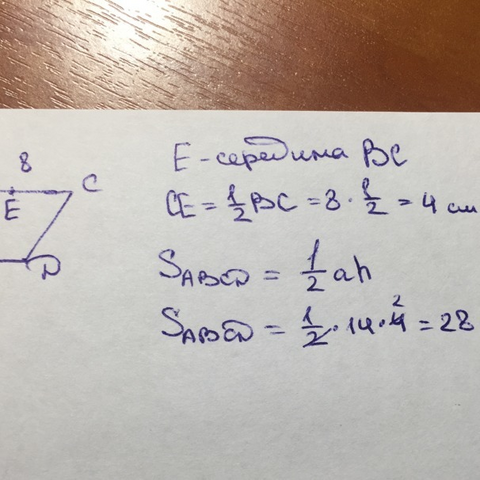 8
C
E
D
E - середина BC
CE = 1/2 BC = 8 · 1/2 = 4 см
S ABCD = 1/2 ah
S ABCD = 1/2 · 14 · 4 2 = 28